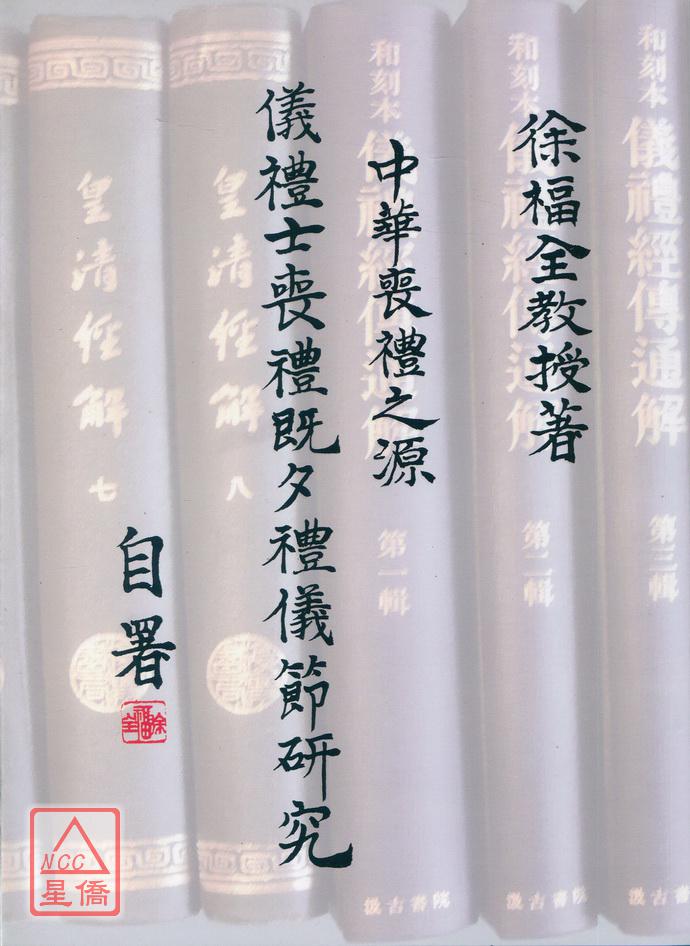 徐福全教授著
中華喪禮之源
儀禮士喪禮既夕禮儀節研究
自署
徐福全
和刻本
儀禮經傳通解
第三輯
汲古書院
和刻本
儀禮經傳通解
第二輯
汲古書院
和刻本
儀禮經傳通解
第一輯
汲古書院
皇清經解
八
皇清經解
七
NCC
星僑